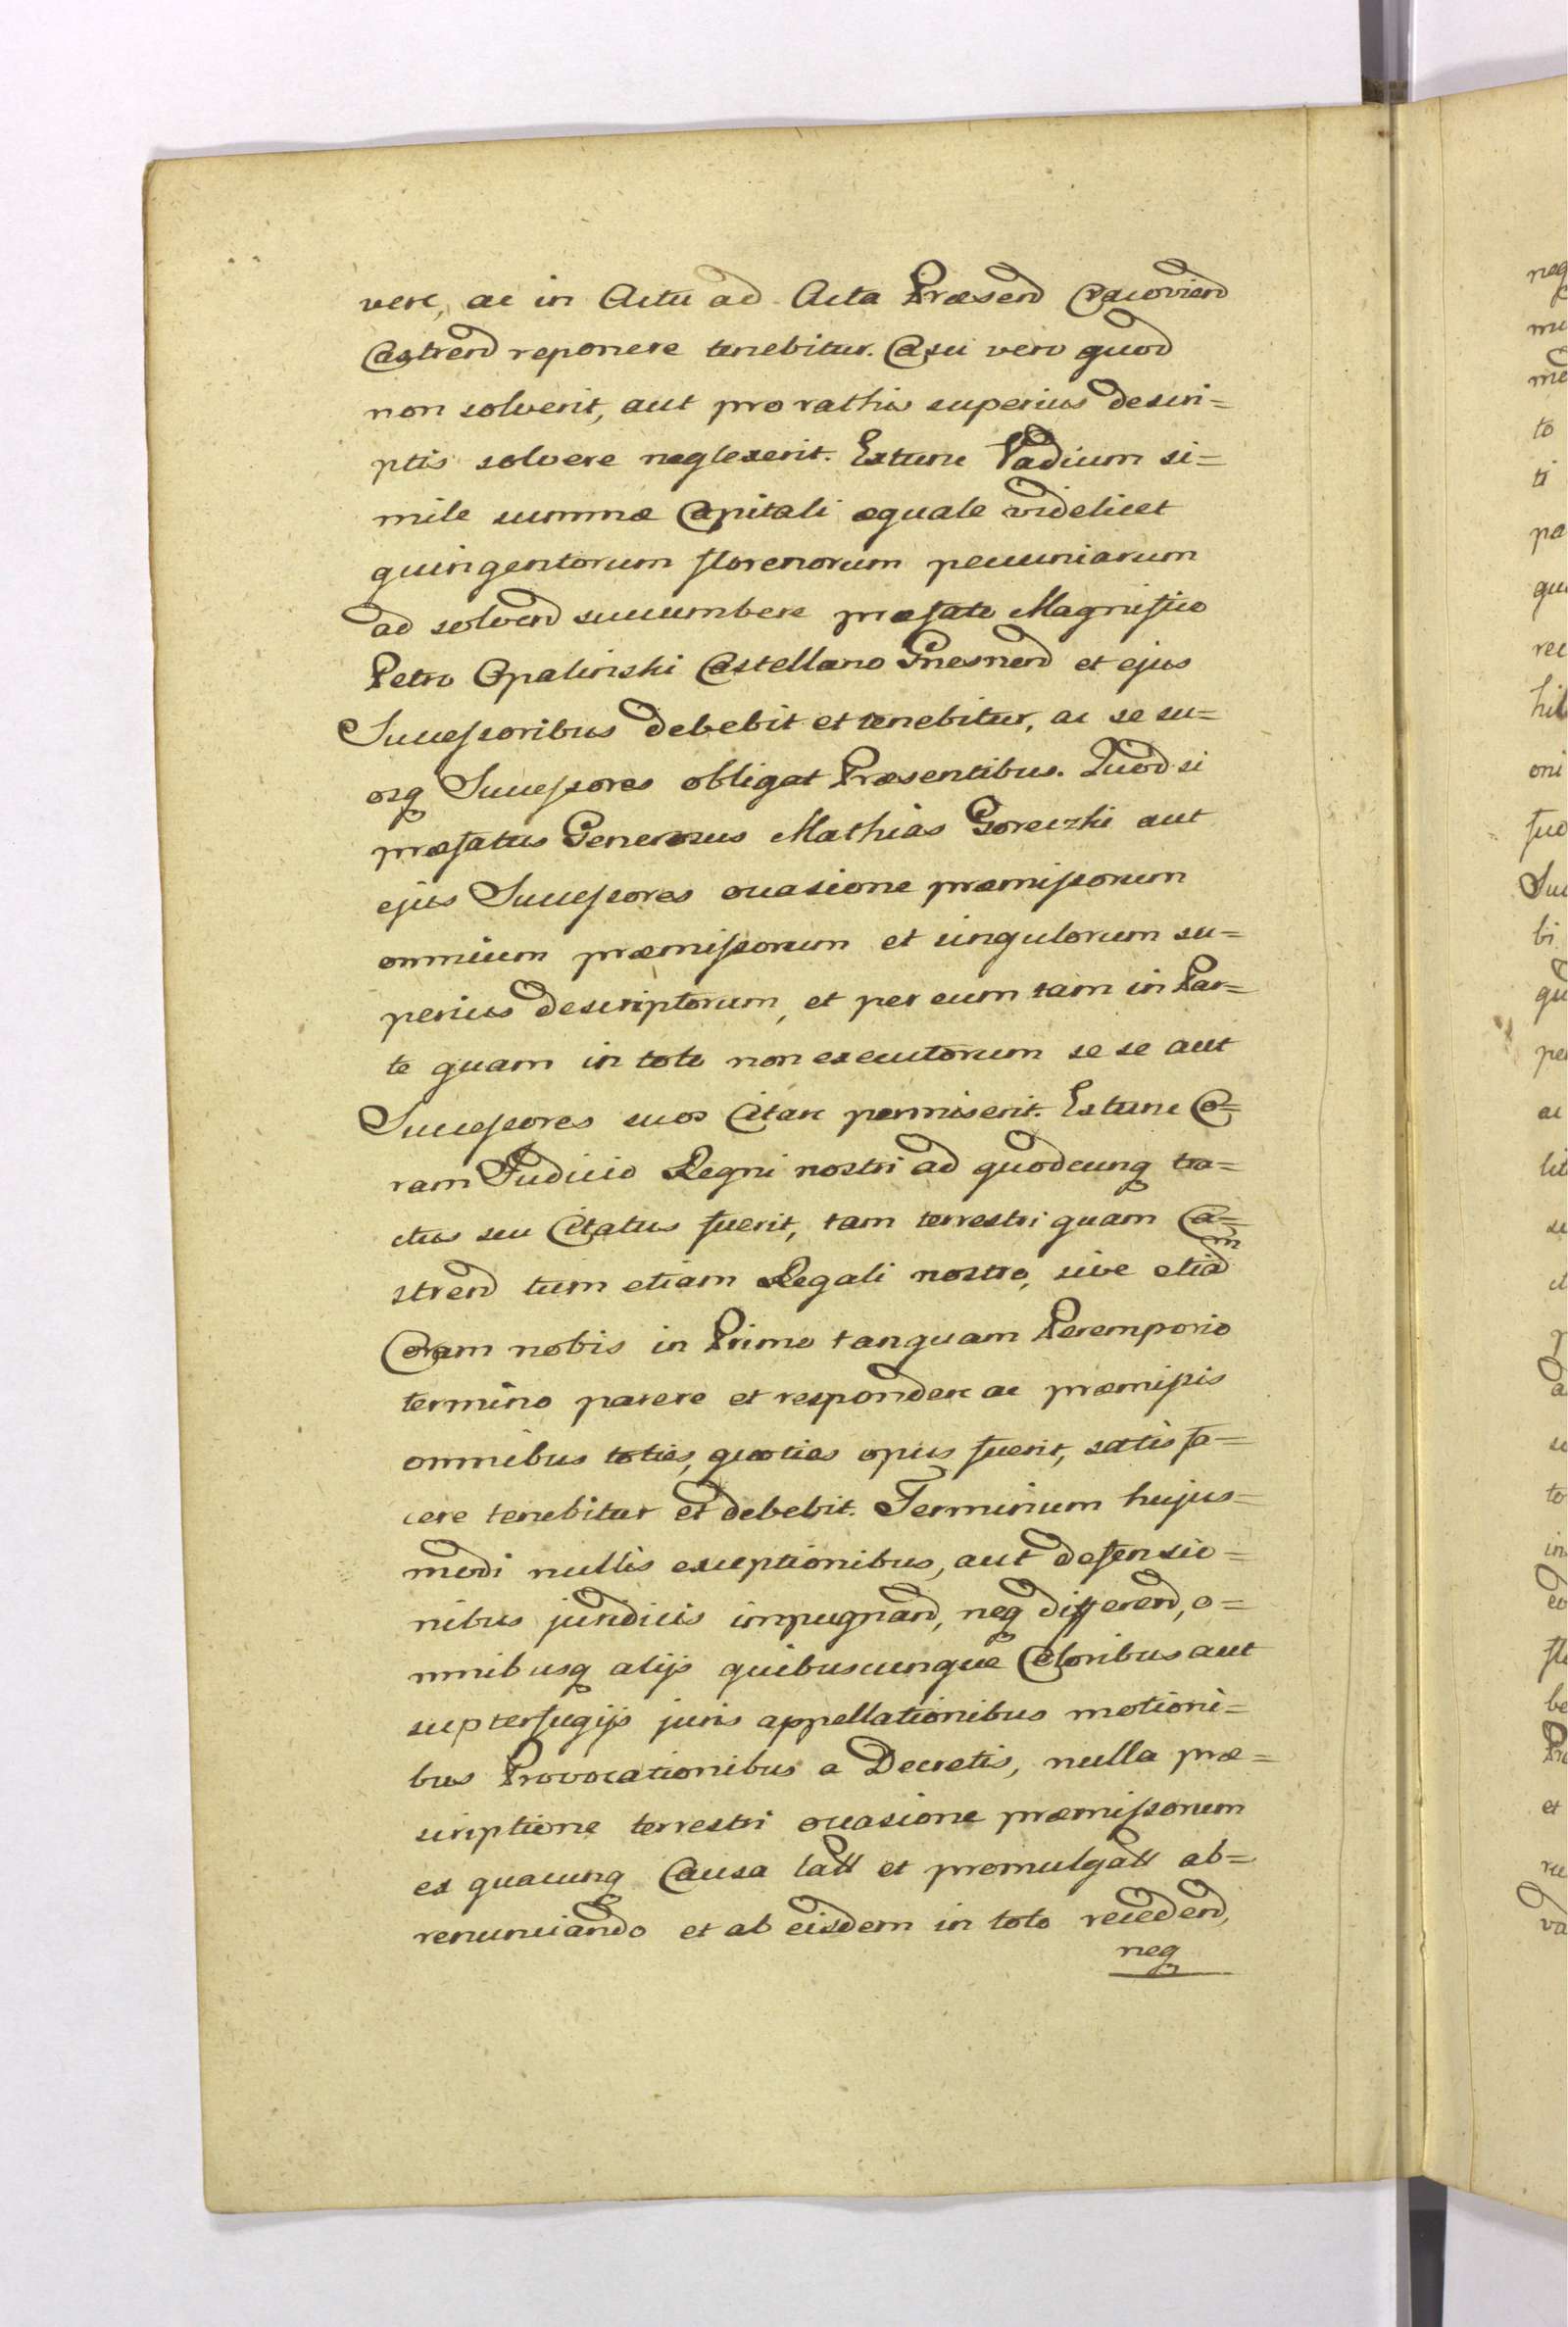 vere, ac in Actu ad Acta Præsend Cracoviend
Castrend reponere tenebitur. Casu vero quod
non solverit, aut pro rathis superius descri=
ptis solvere neglexerit. Extunc Vadium si=
mile summæ Capitali æquale videlicet
quingentorum florenorum pecuniarum
ad solvend succumbere præfato Magnifico
Petro Opalinski Castellano Gnesnend et ejus
Successoribus debebit et tenebitur, ac se su=
osq Successores obligat Præsentibus. Quod si
præfatus Generosus Mathias Goreczki aut
ejus Successores occasione præmissorum
omnium præmissorum et singulorum su=
perius descriptorum, et per eum tam in Par=
te quam in toto non executorum se se aut
Successores suos Citare permiserit. Extunc Co=
ram Judicio Regni nostri ad quodcunq tra=
ctus seu Citatus fuerit, tam terrestri quam Ca=
strend tum etiam Regali nostro, sive etiam
Coram nobis in Primo tanquam Peremporio
termino parere et respondere ac præmissis
omnibus toties, quoties opus fuerit, satisfa=
cere tenebitur et debebit. Terminum hujus=
modi nullis exceptionibus, aut defensio=
nibus juridicis impugnand, neq differend, o=
mnibusq alijs quibuscunque Coloribus aut
supterfugijs juris appellationibus motioni=
bus Provocationibus a Decretis, nulla præ=
scriptione terrestri occasione præmissorum
ex quacunq Causa latt et promulgatt ab=
renunciando et ab eisdem in toto recedend,
neq
neq
to
ti
pa
qui
rec
oni
Suc
bi
ac
lit
to
in
et